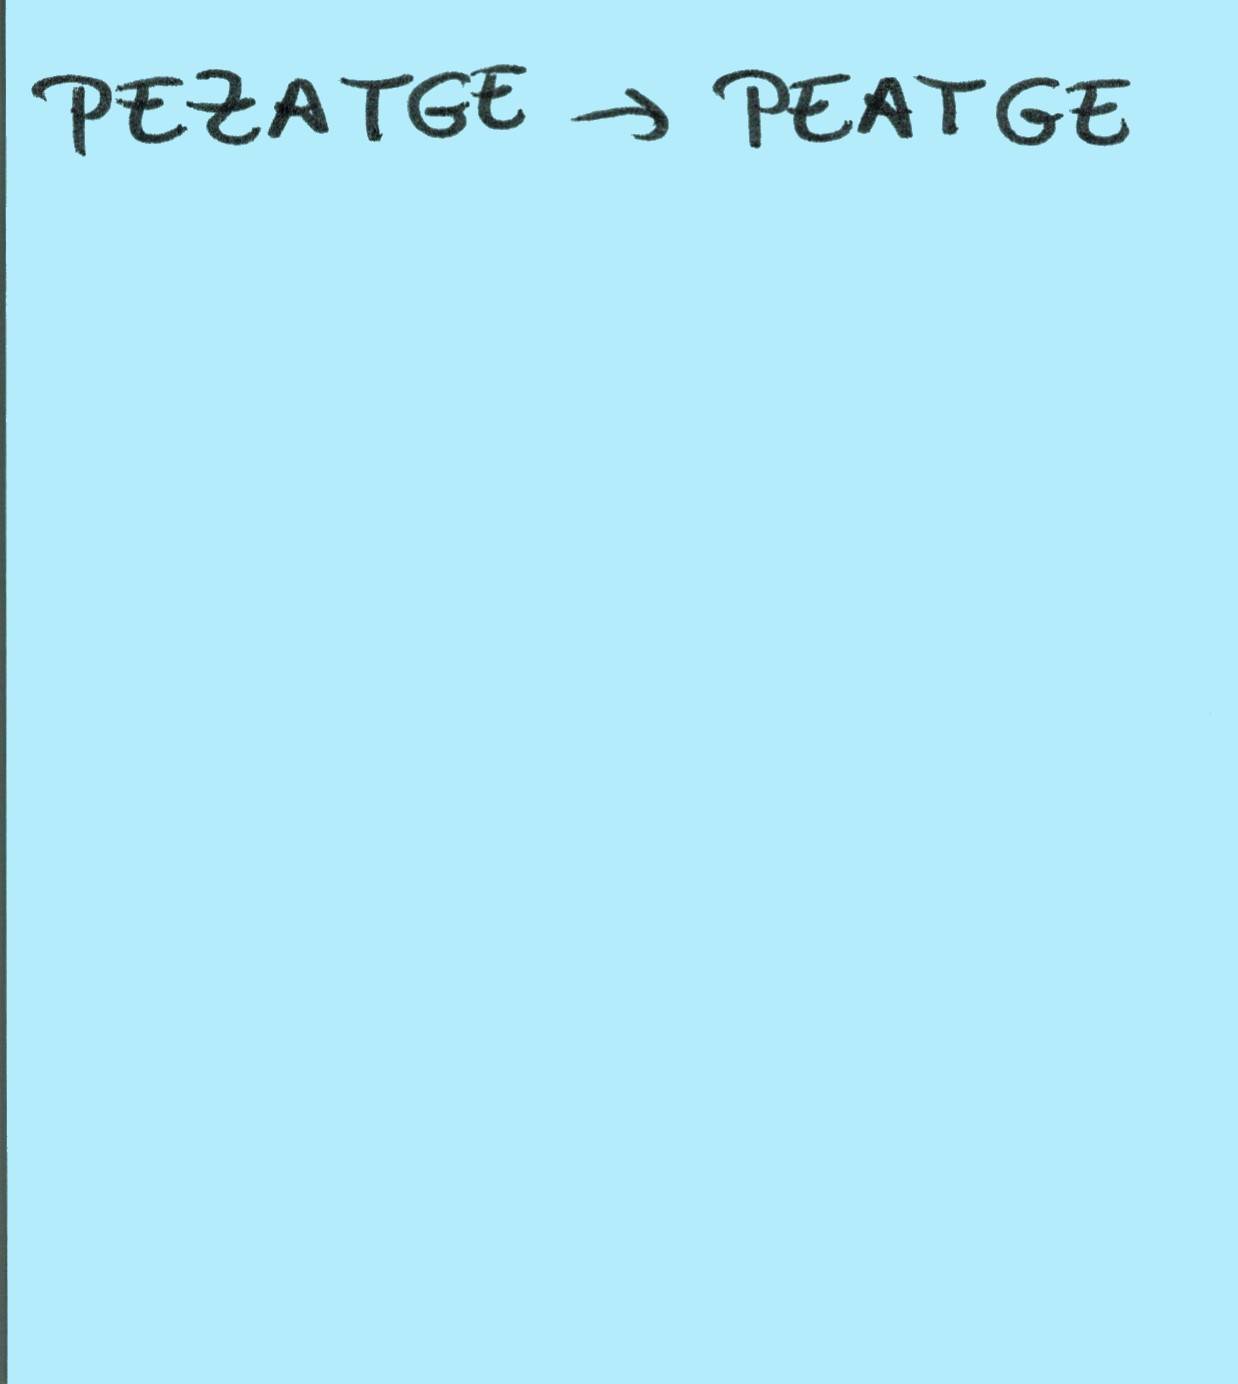 PEZATGE → PEATGE